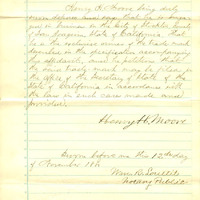 Henry H. Moore being duly
sworn deposes and says that he is engaged
in business in the City of Stockton County
of San Joaquin State of California that
has the exclusive use of the trade mark
described in the specification accompanying
this affidavit and is petitioner that
the said trade mark may be filed in
the office of the Secretary of State of the
State of California in accordance with
the law in such cases made and
provided.
Henry H. Moore
Sworn before me this 12th day
of November 18
Notary Public